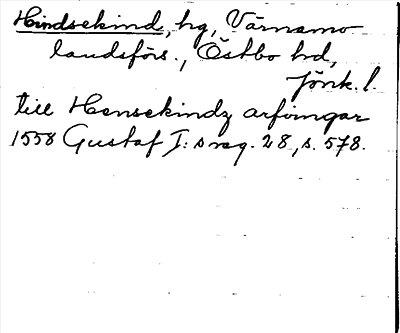 Hindsekind, hg, Värnamo
landsförs., Östbo hd,
Jönk. l.
till Hensekindz arfvingar
1558 Gustaf I:s reg. 28, s. 578.